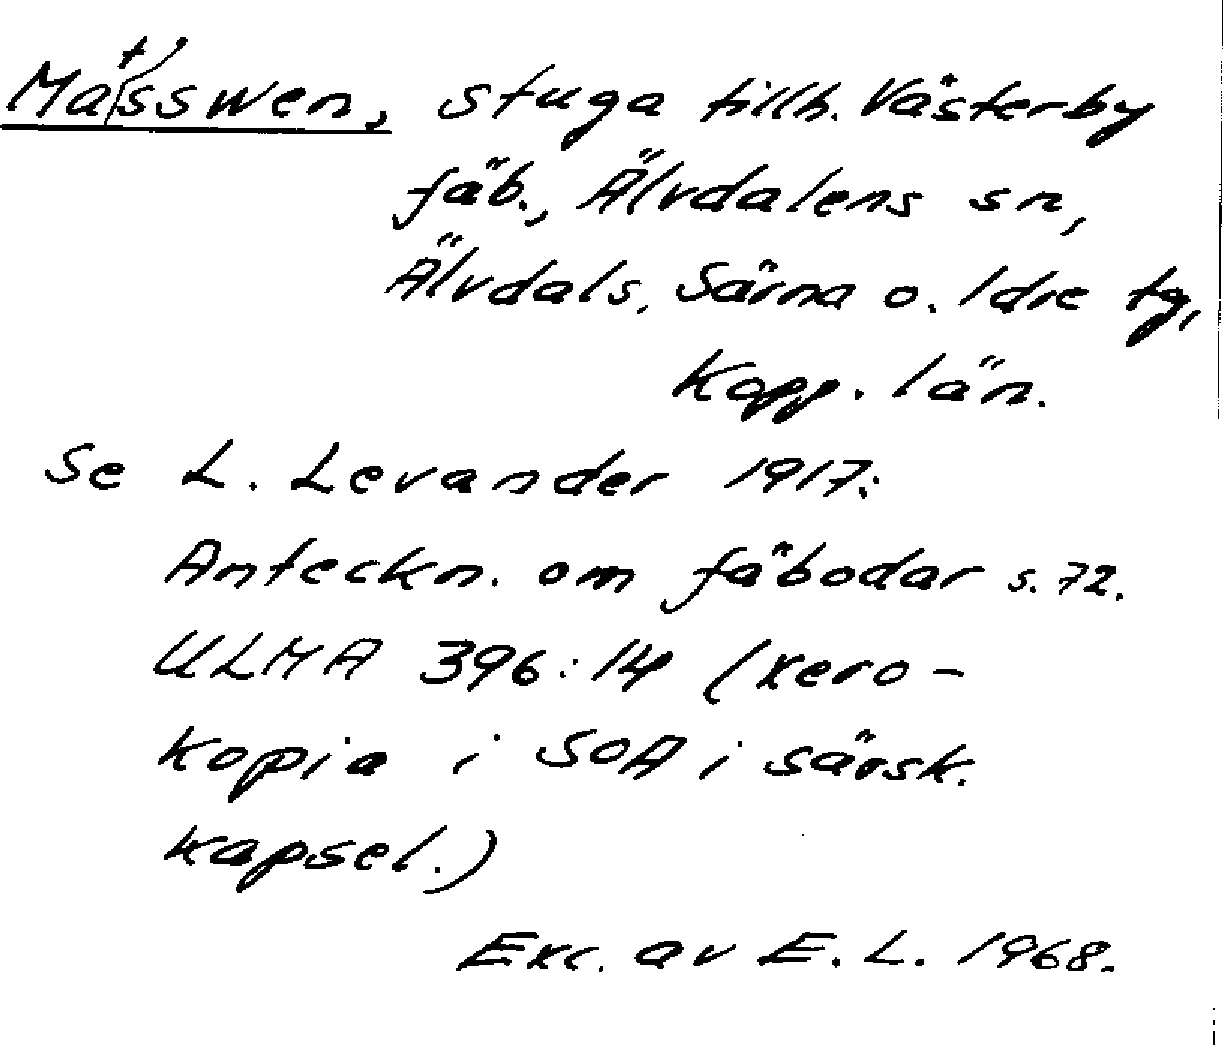 Mat'sswen, stuga tillh. Västerby
fäb., Älvdalens sn,
Älvdals, Särna o. Idre tg,
Kopp. län.
Se L. Levander 1917:
Anteckn. om fäbodar s. 72.
ULMA 396:14 (xero-
kopia i SOA i särsk.
kapsel.)
Exc. av E. L. 1968.